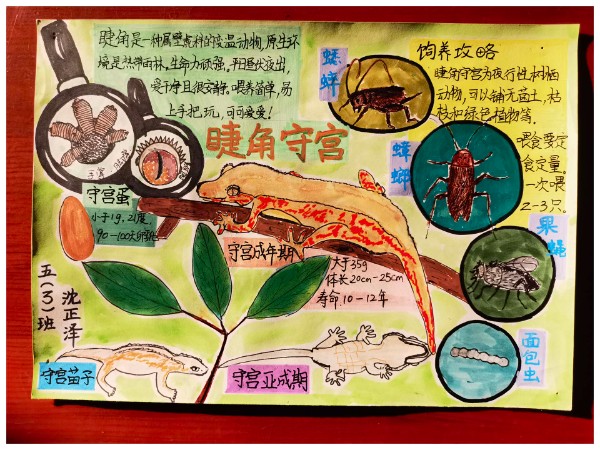 睫角是一种属壁虎科的变温动物,原生环
境是热带雨林。生命力顽强。平日昼伏夜出,
爱干净且很安静。喂养简单,易
上手把玩,可可爱爱!
睫角守宫
守宫
眼睛
守宫蛋
小于1g,21度
90-100天孵化
守宫成年期
大于35g
体长20cm-25cm
寿命10-12年
五(3)班
沈正泽
守宫苗子
守宫亚成期
饲养攻略
睫角守宫为夜行性树栖
动物,可以铺无菌土,枯
枝和绿色植物等。
喂食要定
食定量。
一次喂
2-3只。
蟋蟀
蟑螂
果蝇
面包虫